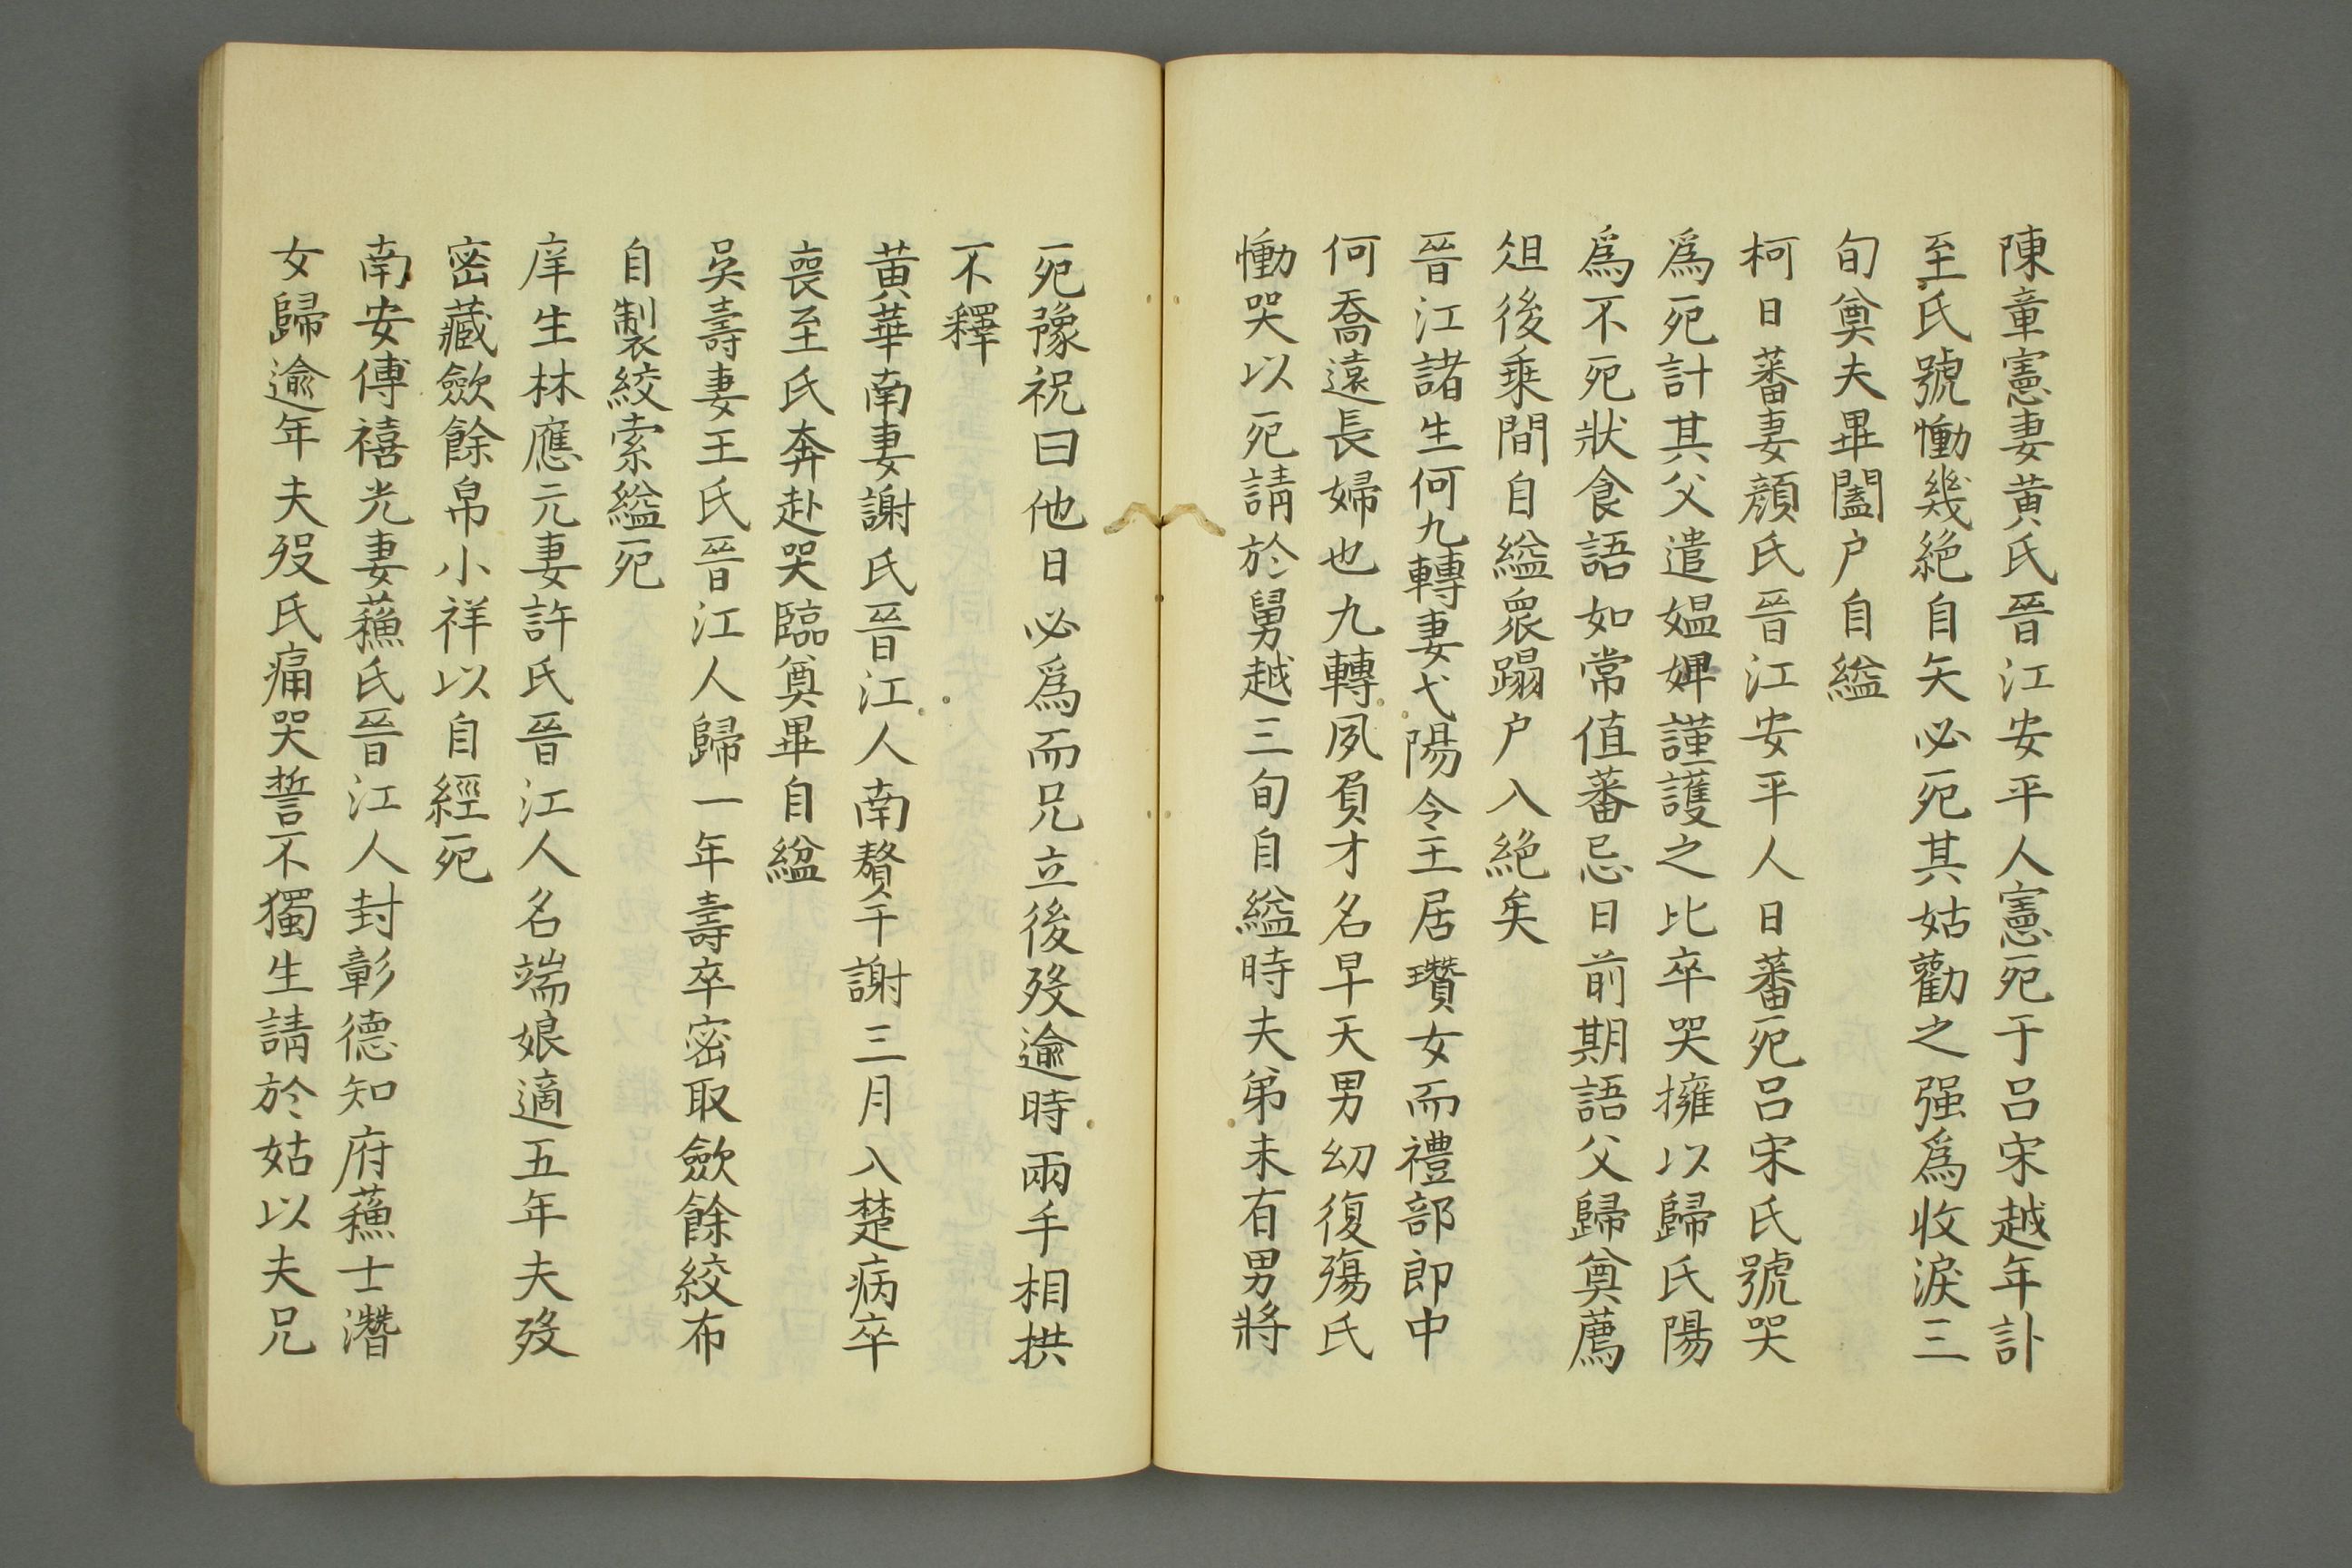 陳章憲妻黄氏晉江安平人憲死于呂宋越年訃
至氏號慟幾絕自矢必死其姑勸之强爲收淚三
旬奠夫畢闔户自縊
柯日蕃妻顏氏晉江安平人日蕃死呂宋氏號哭
爲死計其父遣媪婢謹護之比卒哭擁以歸氏陽
爲不死狀食語如常值蕃忌日前期語父歸奠薦
俎後乗間自縊衆蹋户入絕矣
晉江諸生何九轉妻弋陽令王居瓚女而禮部郎中
何喬遠長婦也九轉夙負才名早夭男幼復殤氏
慟哭以死請於舅越三旬自縊時夫弟未有男將
死豫祝曰他日必爲而兄立後殁逾時兩手相拱
不釋
黄華南妻謝氏晉江人南贅于謝三月入楚病卒
喪至氏奔赴哭臨奠畢自縊
吳壽妻王氏晉江人歸一年壽卒密取歛餘絞布
自製絞索縊死
庠生林應元妻許氏晉江人名端娘適五年夫殁
密藏歛餘帛小祥以自經死
南安傅禧光妻蘓氏晉江人封彰德知府蘓士濳
女歸逾年夫殁氏痛哭誓不獨生請於姑以夫兄